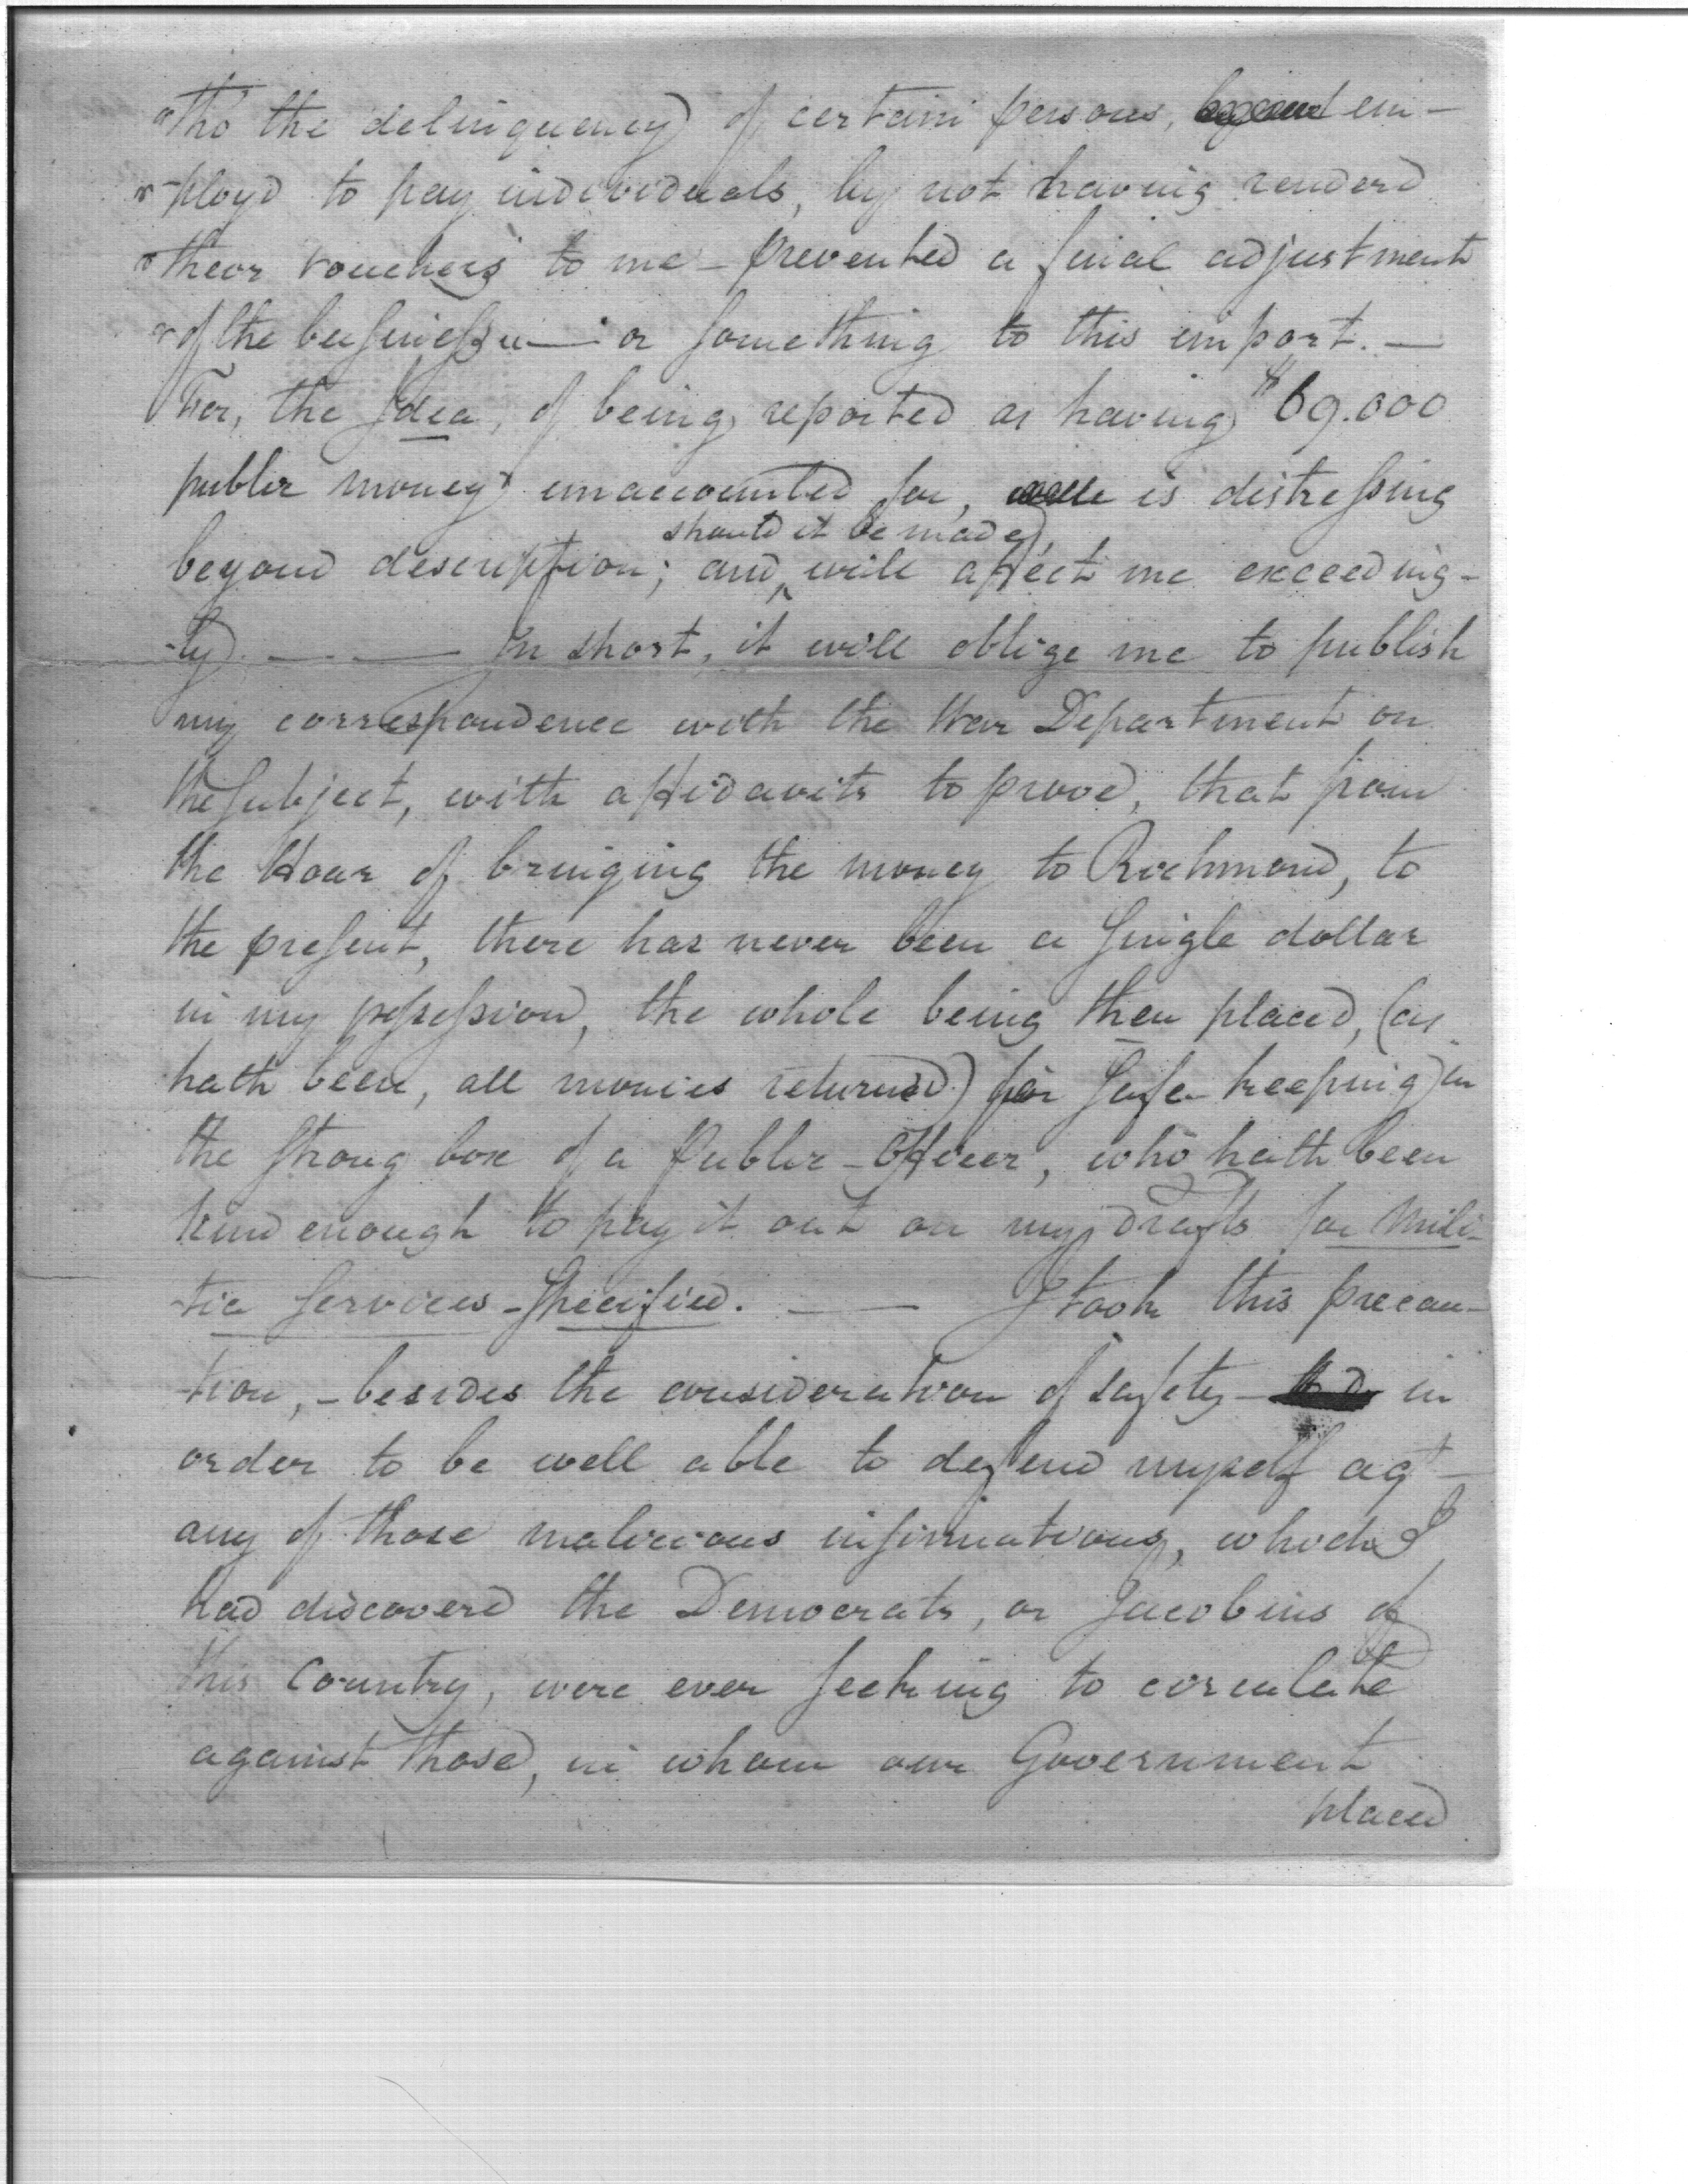 "Tho' the delinquency of certain persons, em-
"-ployd to pay individuals, by not having renderd
"their vouchers to me - prevented a final adjustment
"of the business" — or something to this import. —
For, the Idea, of being reported as having $69.000
public money unaccounted for, is distressing
should it be made,
beyond description; and, ‸ will affect me exceeding-
-ly. — — In short, it will oblige me to publish
my correspondence with the War Department on
the subject, with affidavits to prove, that from
the Hour of bringing the money to Richmond, to
the present, there has never been a single dollar
in my possession, the whole being then placed, (as
hath been, all monies returned) for safe keeping in
the strong box of a Public-Officer, who hath been
kind enough to pay it out on my drafts for Mili-
-tia services - specified. — — I took this precau-
-tion, - besides the consideration of safety - in
order to be well able to defend myself agt
any of those malicious insinuations, which I
had discovered the Democrats, or Jacobins of
this Country, were ever seeking to circulate
against those, in whom our Government
placed